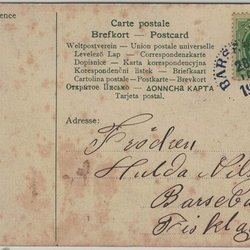 ence
Carte postale
Brefkort — Postcard
Weltpostverein — Union postale universelle
Levelező Lap — Correspondenzkarte
Dopisnice — Karta korespondencyjna
Korespondenční listek — Briefkaart
Cartolina postale — Postkarte — Brevkort
Открытое Письмо — ΔΟΝΝCΗΑ ΚΑΡΤΑ
Tarjeta postal.
BARSE
Adresse:
Fröken
Hulda Nils
Barsebä
Fiskly